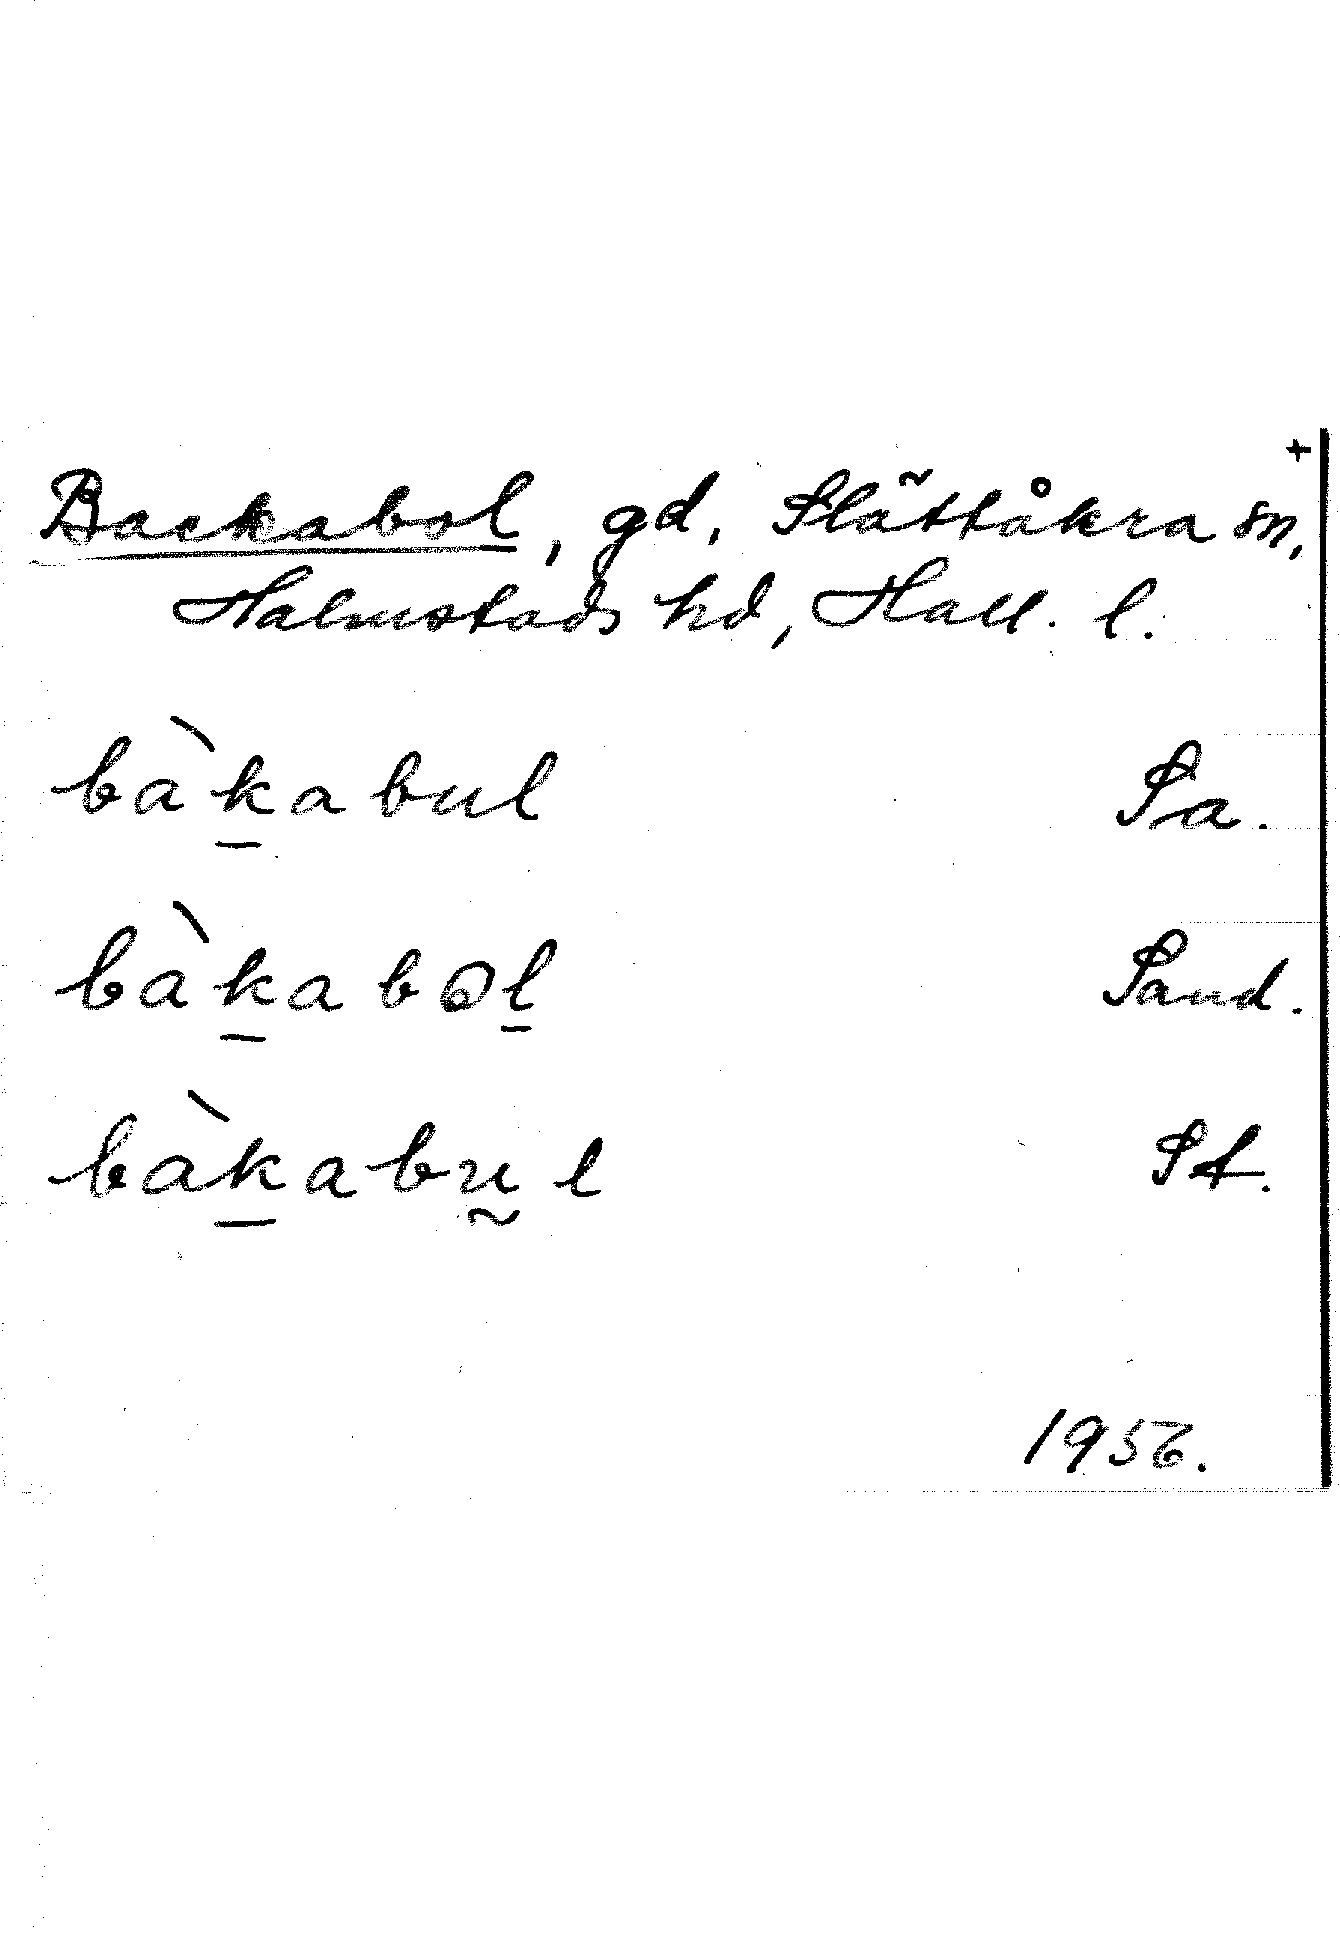 +
Backabol, gd, Slättåkra sn,
Halmstads hd, Hall. l.
bàk̲abul Sa.
bàk̲abωl̲ Sand.
bàk̲abṵl St.
1956.